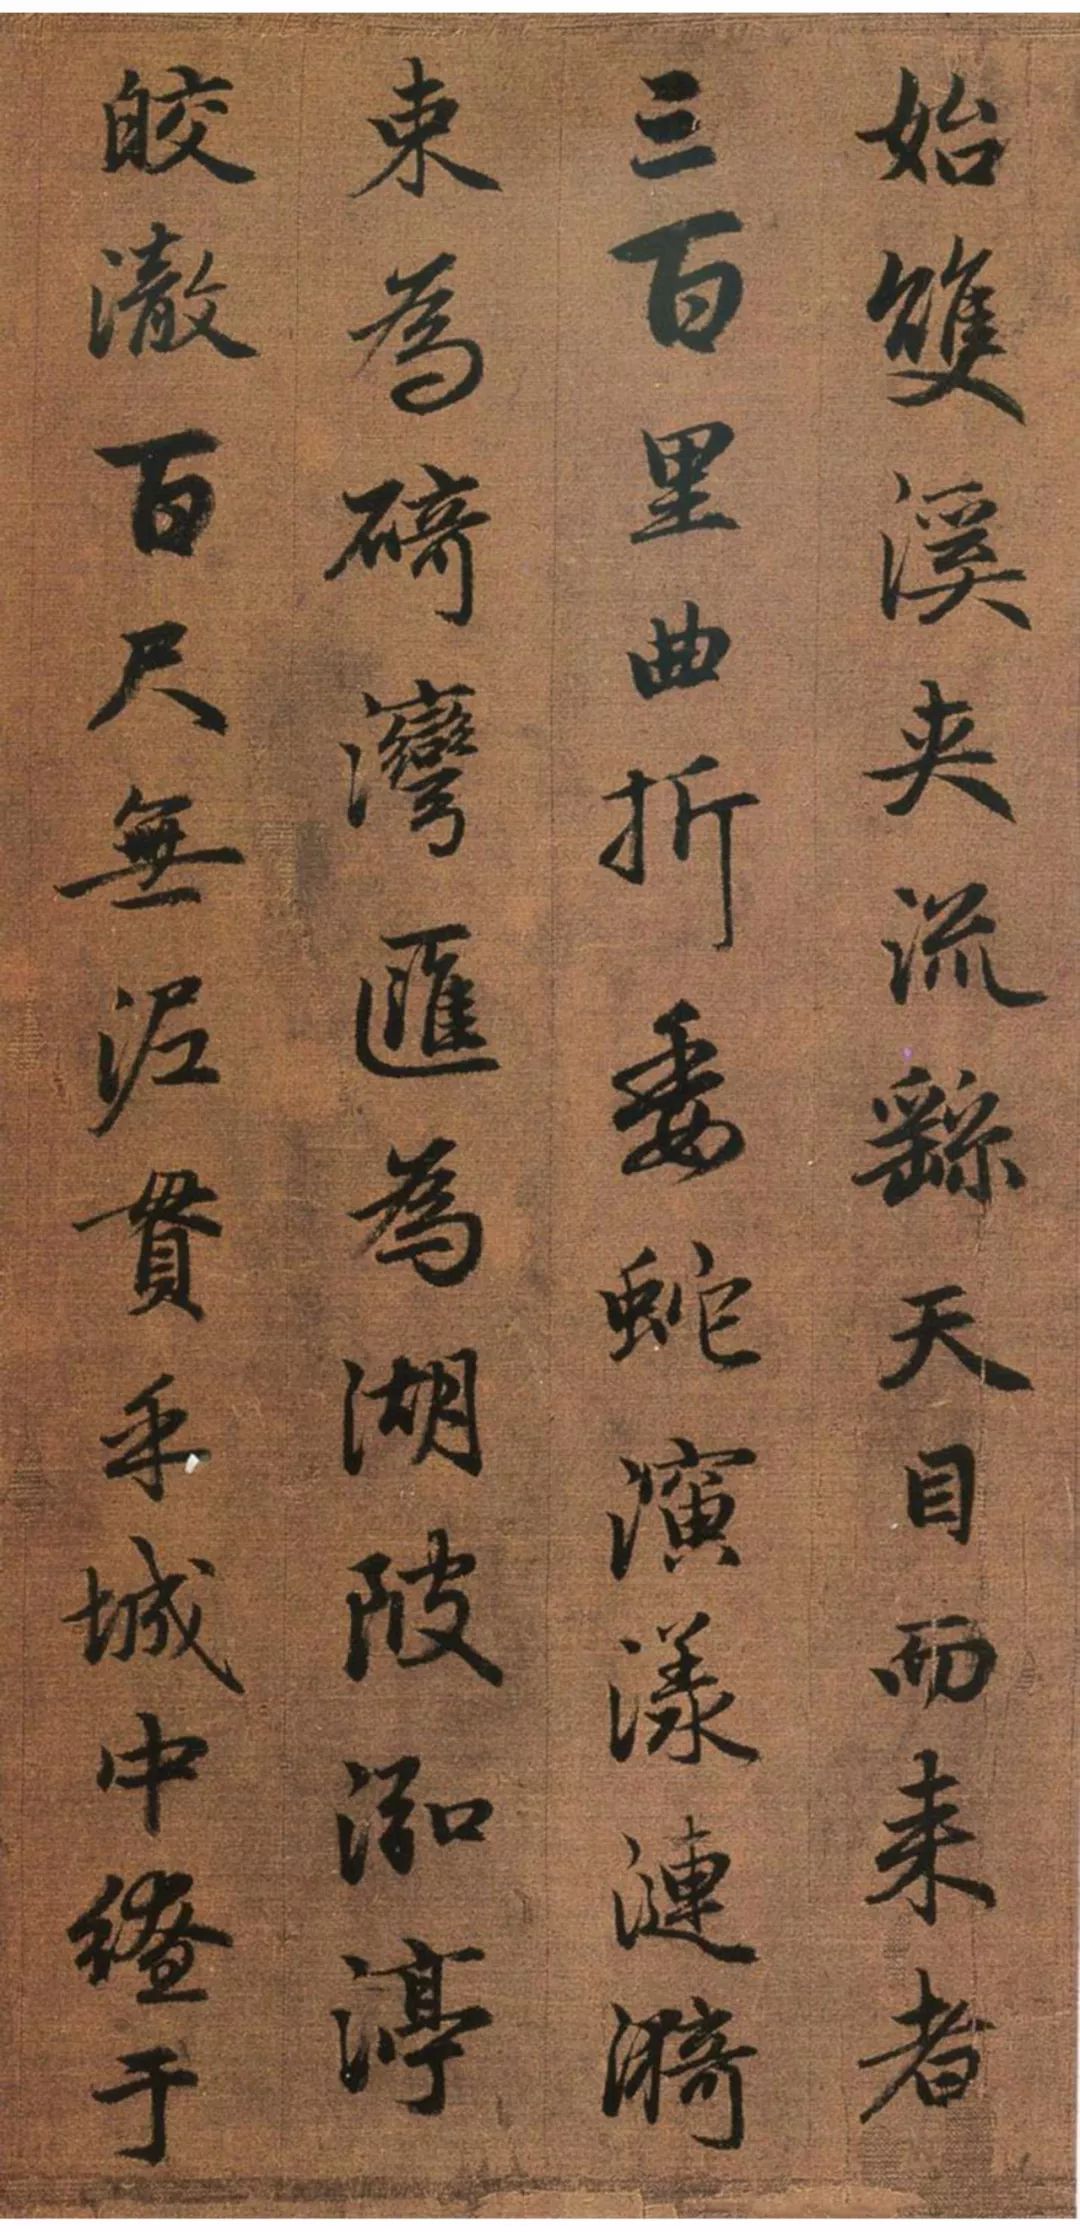 始雙溪夾流繇天目而来者
三百里曲折委蛇演漾漣漪
束為碕灣匯為湖陂泓渟
皎澈百尺無泥貫乎城中繚于